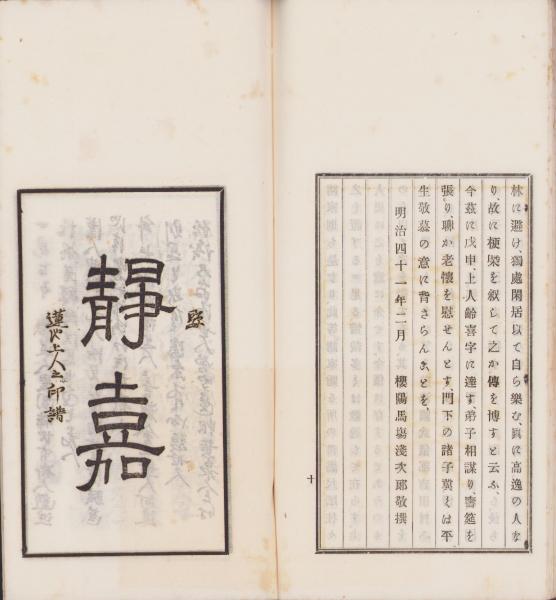 林に避け、獨處閑居以て自ら樂む、眞に高逸の人な
り、故に梗槩を叙して之か傳を博すと云ふ、
今茲に戊申、上人齡喜字に達す弟子相謀り、壽筵を
張り、聊か老懷を慰せんとす、門下の諸子冀くは平
生敬慕の意に背さらんことを、
明治四十一年二月 櫻陽馬塲淺次郎敬撰
十
靜嘉
上人之印譜